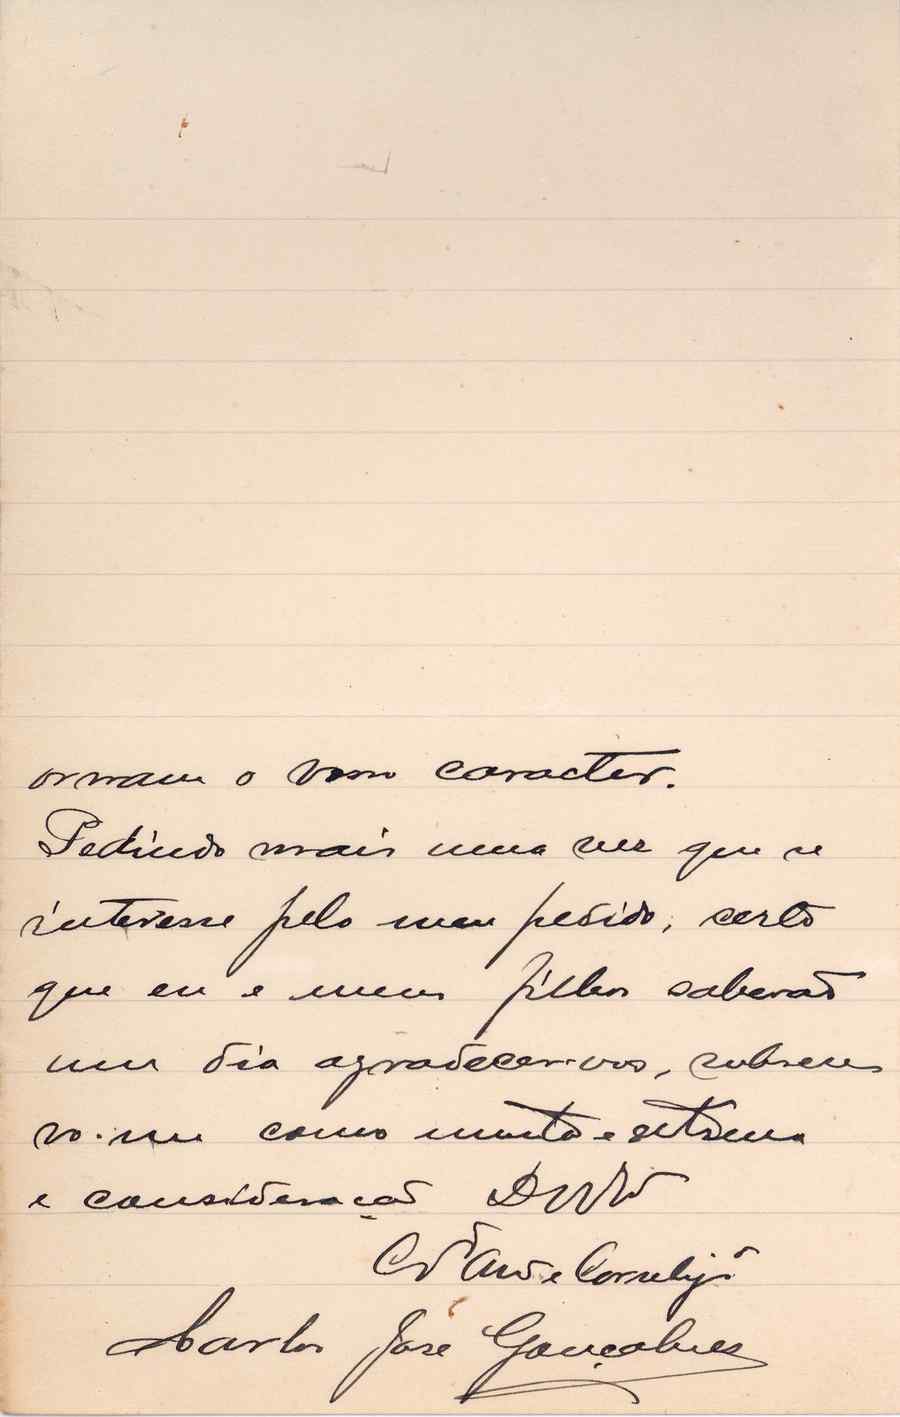 ornam o vosso caracter.
Pedindo mais uma vez que se
interesse pelo meu pedido, certo
que eu e meus filhos saberão
um dia agradecer-vos, subscre
vo-me como muita estima
e consideração
Carlos José Gonçalves